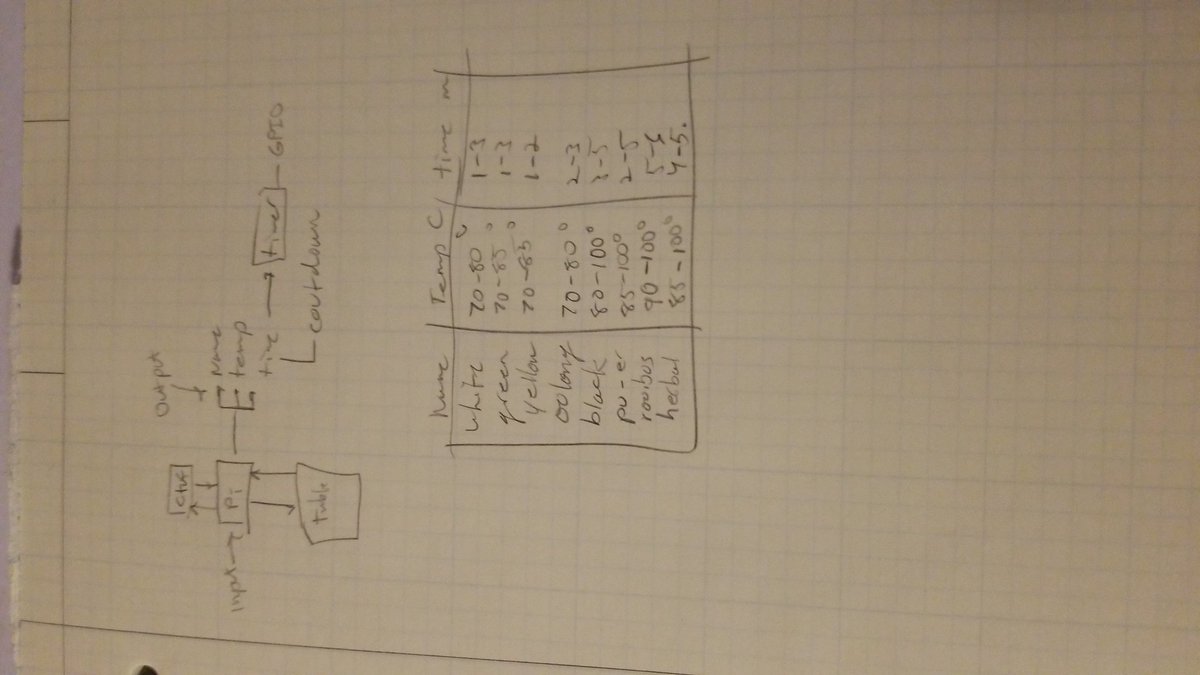 Output
input
Pi
Name
temp
time
timer
GPIO
coutdown
table
Name Temp C time m
white 70-80° 1-3
green 70-85° 1-3
yellow 70-85° 1-2
oolong 70-80° 2-3
black 80-100° 3-5
pu-er 85-100° 2-5
rooibus 90-100° 5-6
herbal 85-100° 4-5.